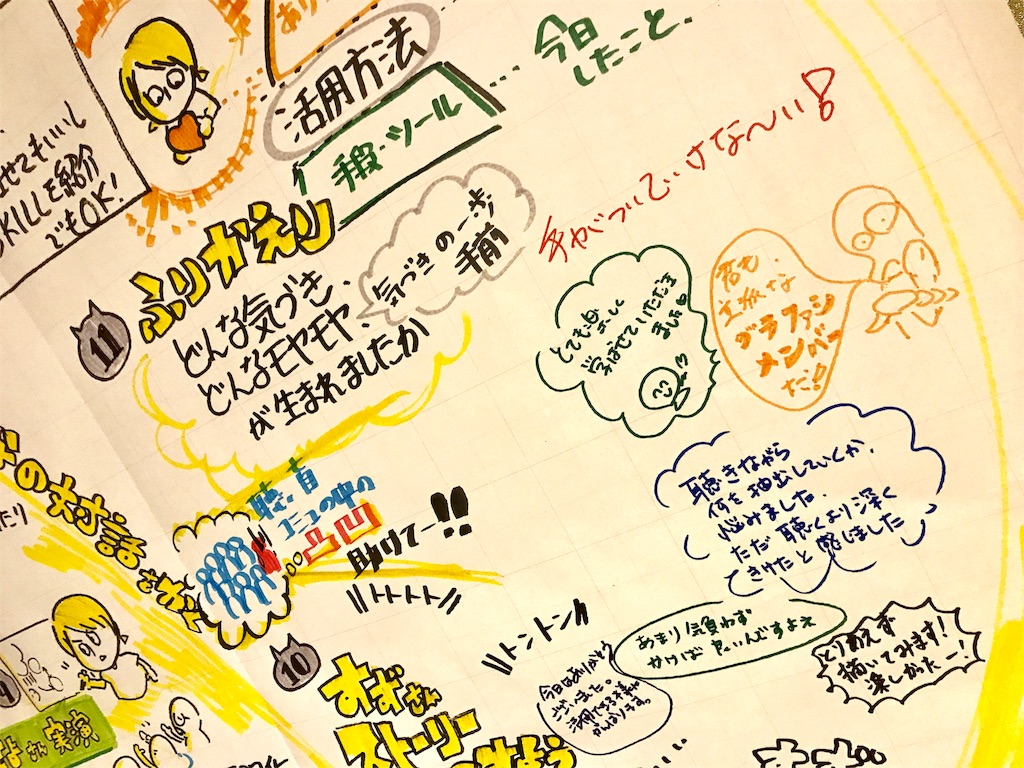 今日
したこと.
活用方法
手段・ツール
せてもいいし
SKILLを紹介
でもOK!
11
ふりかえり
どんな気づき、
どんなモヤモヤ、
が生まれましたか
気づきの一歩
手前
手がついていけな〜い!
とても楽しく
学ばせていただき
ました。
君も、
立派な
グラファシ
メンバー
だ!!
聴きながら
何を抽出していくか、
悩みました。
ただ聴くより深く
きけたと感じました
の対話
コミュの中の
凸凹
助けてー!!
トトトト
トントン
10
すずさん
ストーリー
あまり気負わず
かけば良いんですよネ
今日はありがとう
ございました。
がんばります。
とりあえず
描いてみます!
楽しかったー!
さん実演